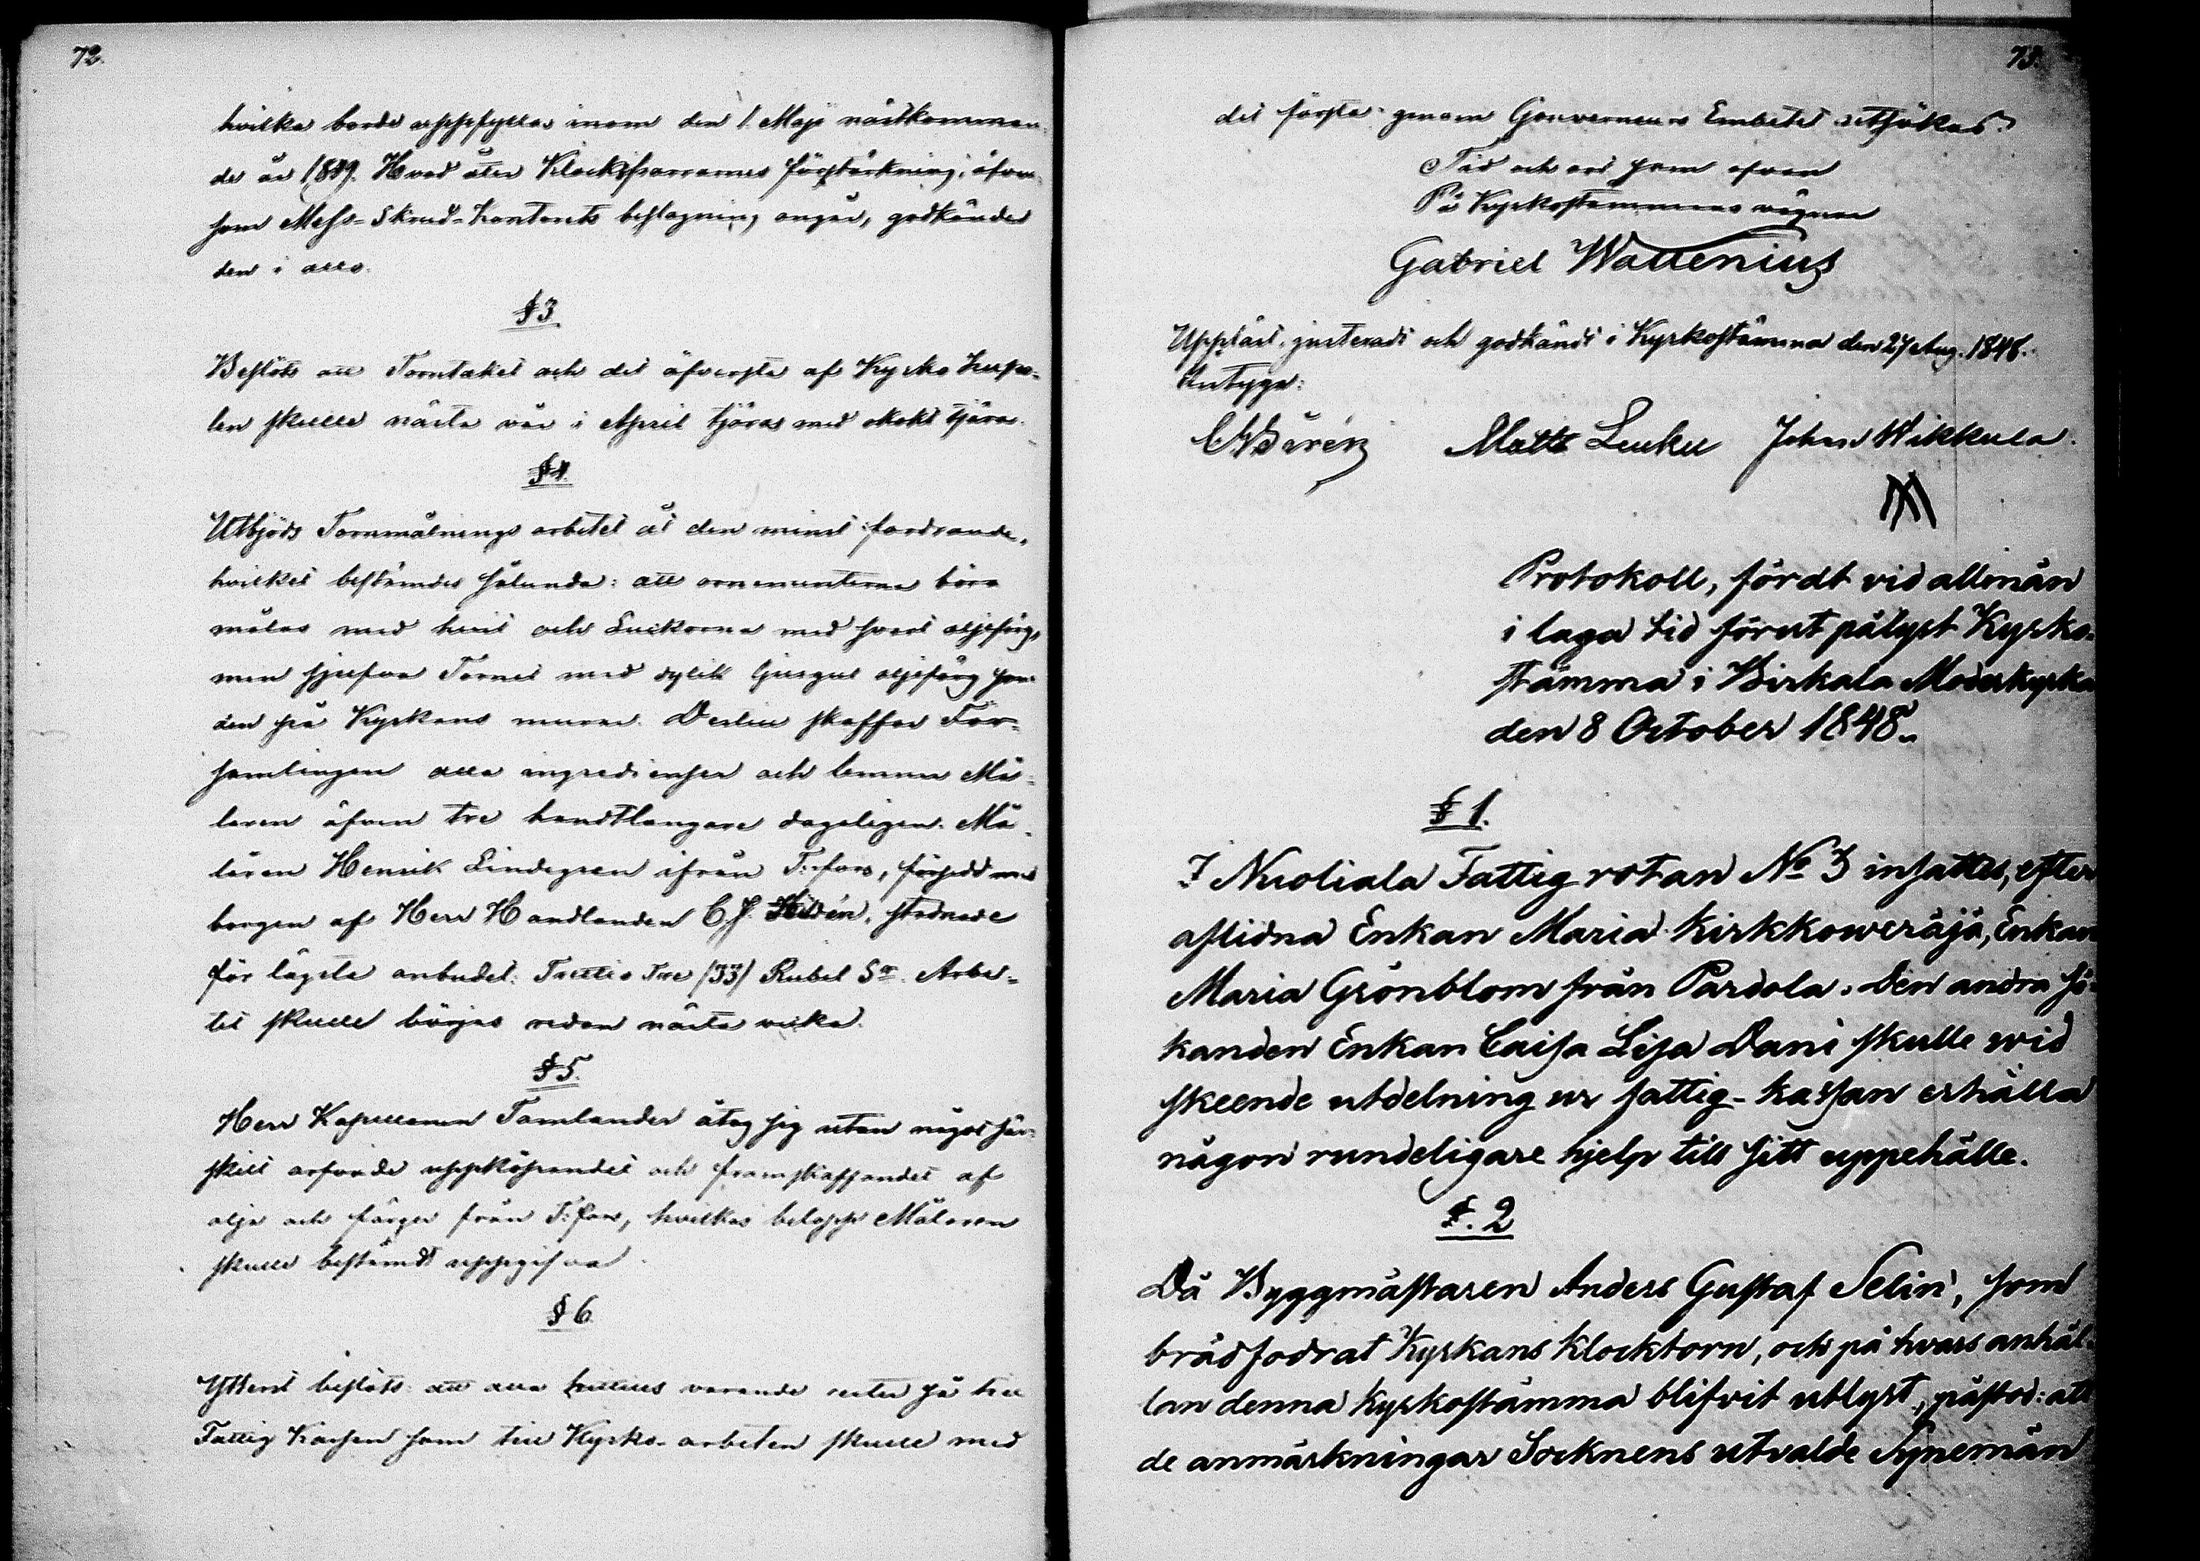 72.
hvilka borde uppfyllas inom den 1. Maji nästkomman-
de år 1849. Hvad åter Klocksparrarnes förstärkning, äfven-
som Mess-Skrud-Kontorets beslagning angår, godkändes
den i allo.
§ 3
Beslöts att Torntaket och det öfversta af Kyrko kupo-
len skulle nästa vår i April tjäras med kokt tjära.
§ 4.
Utbjöds Tornmålnings arbetet åt den minst fordrande,
hvilket bestämdes sålunda: att ornementerna böra
målas med hvit och Luckorna med svart oljefärg,
men sjelfva Tornet med dylik ljusgul oljefärg som
den på Kyrkans murar. Dertill skaffar För-
samlingen alla ingredienser och lemnar Må-
laren äfven tre handtlangare dageligen. Må-
laren Henrik Lindegren ifrån T:fors, försedd med
borgen af Herr Handlanden C. J. Hildén, stadnade
för lägsta anbudet: Trettio Tre (33) Rubel Sr. Arbe-
tet skulle börjas redan nästa vecka.
§ 5.
Herr Kapellanen Tamlander åtog sig utan något sär-
skilt arfvode uppköpandet och framskaffandet af
olja och färger från T:fors, hvilkas belopp Målaren
skulle bestämdt uppgifva.
§ 6.
Ytterst beslöts: att alla hittills varande rester så till
Fattig Kassan som till Kyrko-arbeten skulle med
73.
det första genom Gouverneurs Embetet utsökas.
Tid och ort som ofvan
På Kyrkostämmans vägnar
Gabriel Wallenius
Uppläst, justeradt och godkändt i Kyrkostämma den 27 Aug. 1848.
Intyga:
Matts Luuku Johan Wikkula.
Protokoll, fördt vid allmän
i laga tid förut pålyst Kyrko-
stämma i Birkala Moderkyrka
den 8 October 1848.
§ 1.
I Nuoliala Fattig rotan No 3 insattes, efter
aflidna Enkan Maria Kirkkoweräjä, Enkan
Maria Grönblom från Pardola. Den andra sö-
kanden Enkan Caisa Lisa Dani skulle wid
skeende utdelning ur fattig-kassan erhålla
någon rundeligare hjelp till sitt uppehälle.
§. 2
Då Byggmästaren Anders Gustaf Selin, som
brädfodrat Kyrkans Klocktorn, och på hvars anhål-
lan denna kyrkostämma blifvit utlyst, påstod: att
de anmärkningar Socknens utvalde Synemän